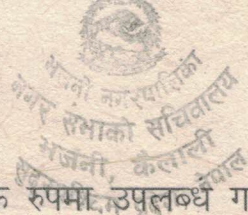 भजनी नगरपालिका
नगर सभाको सचिवालय
भजनी, कैलाली
नेपाल
रुपमा उपलब्ध